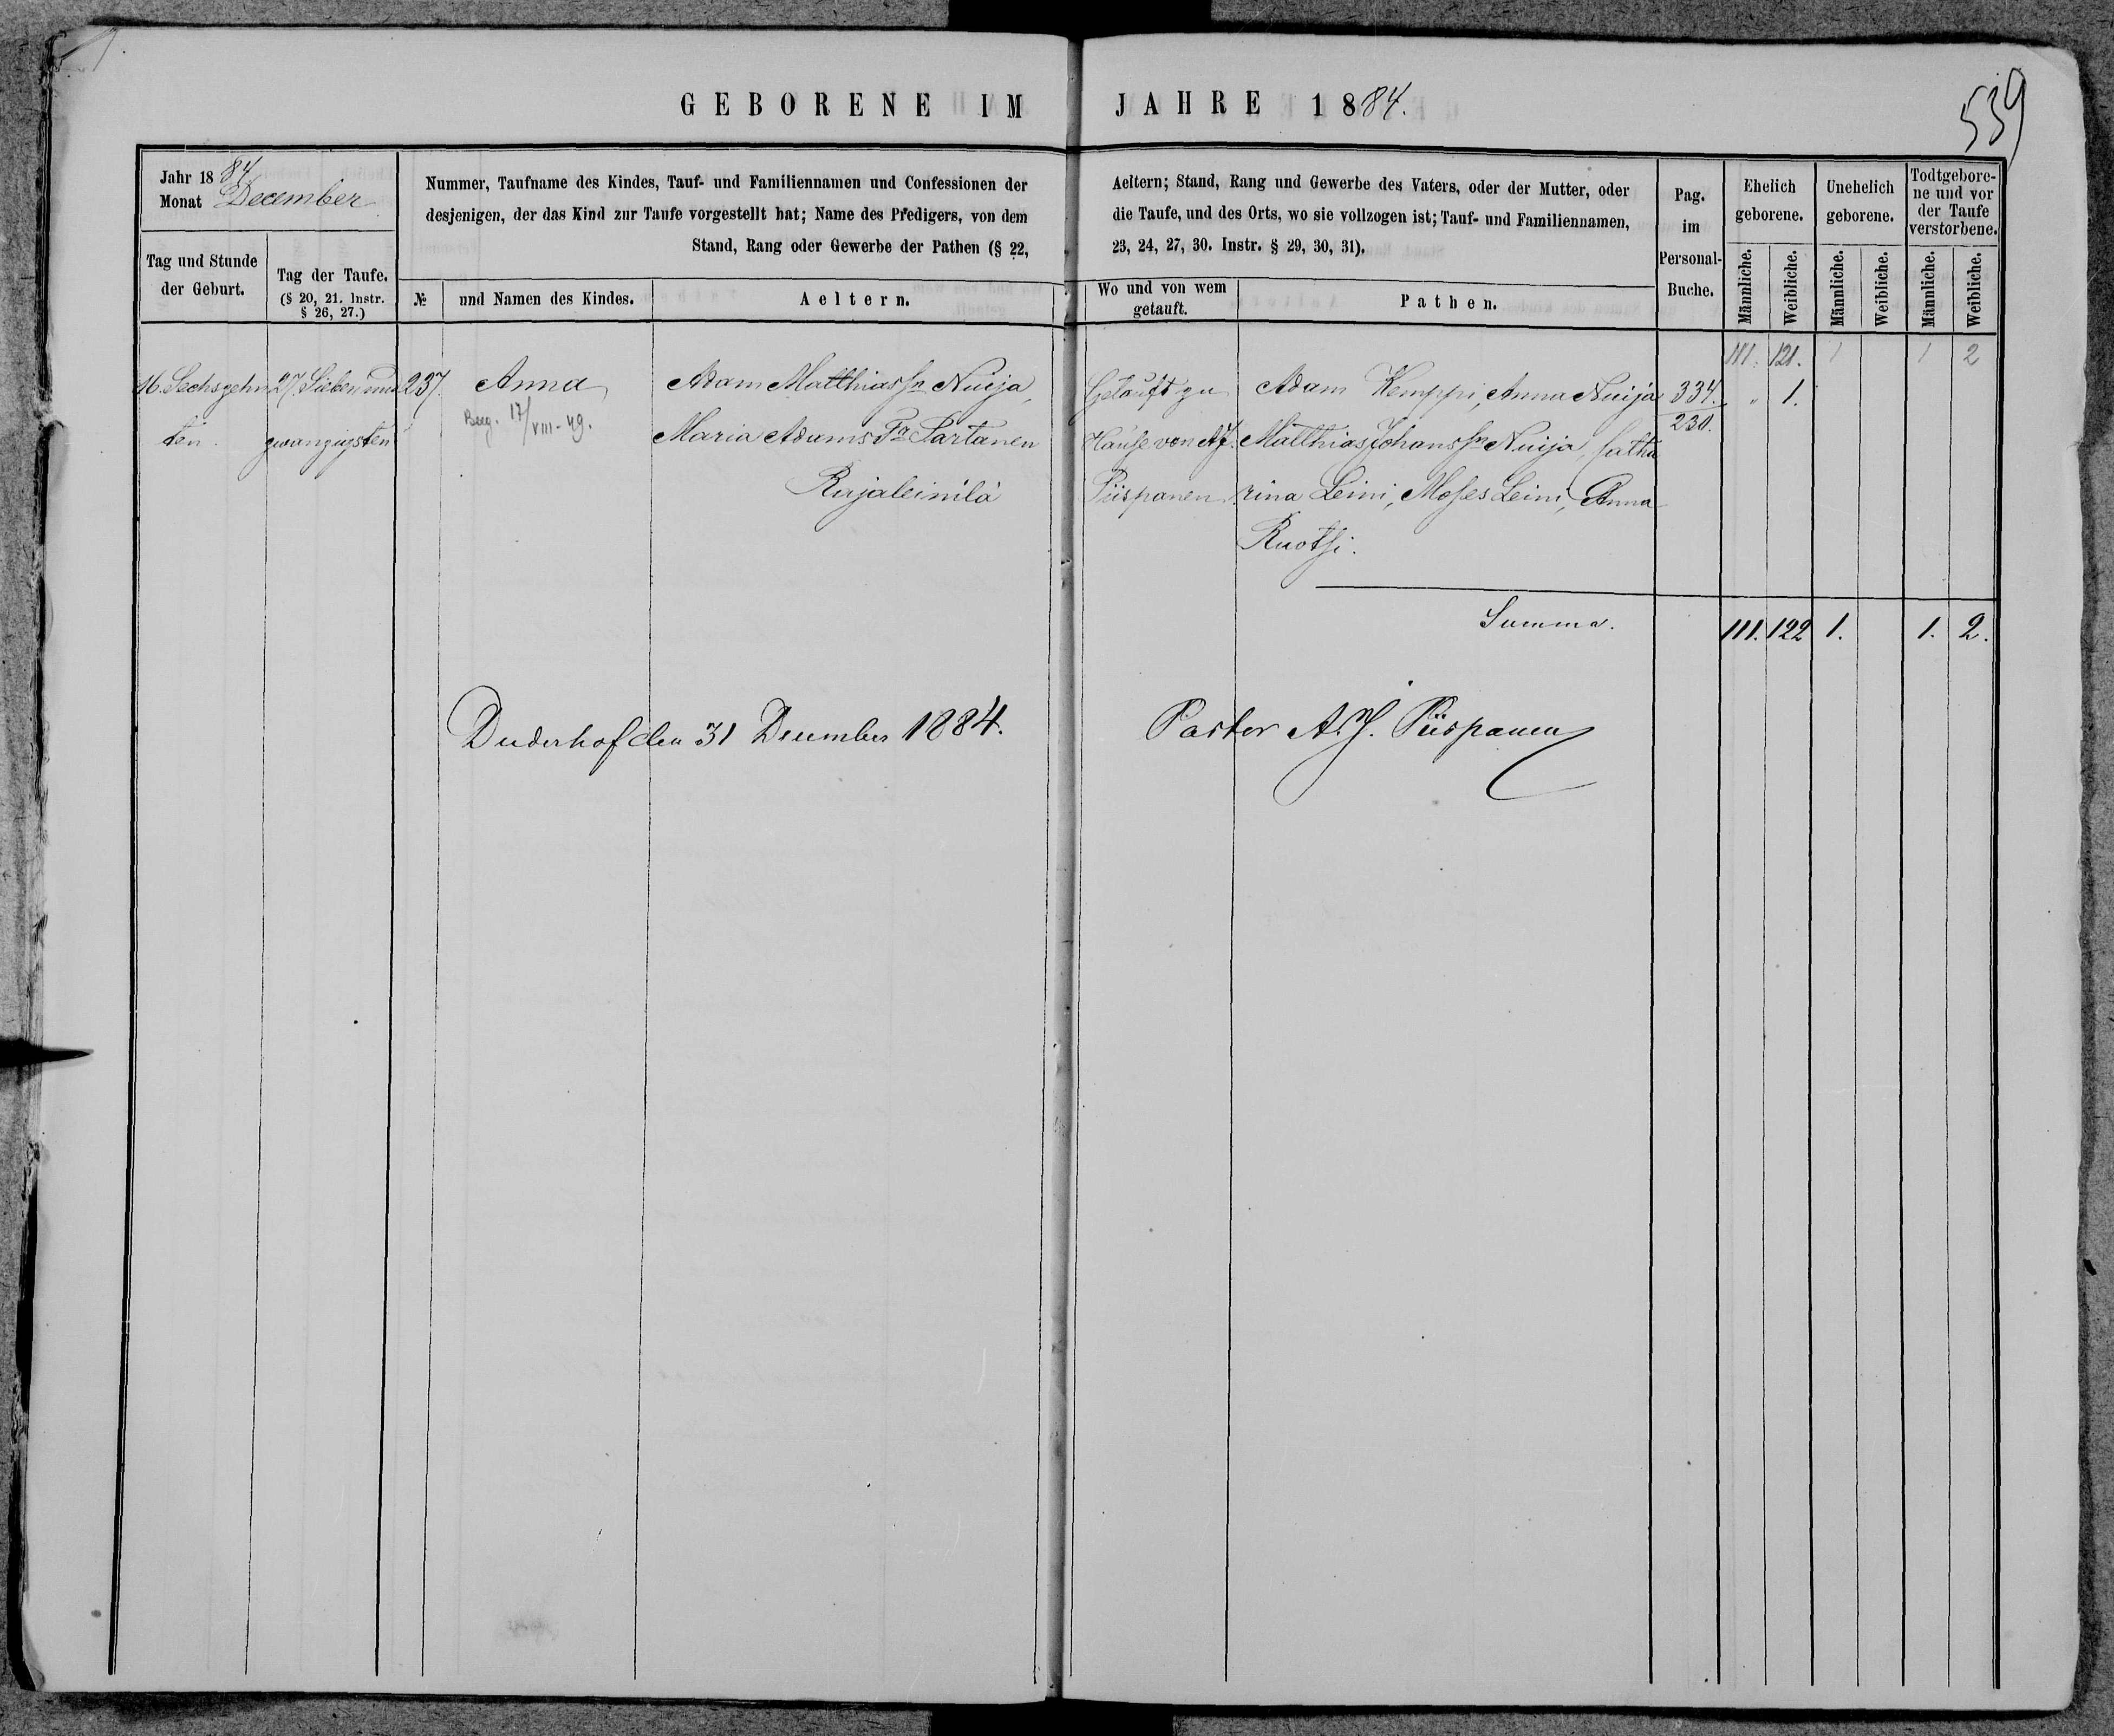 GEBORENE IM JAHRE 1884.
539
Jahr 1884
Monat December
Tag und Stunde
der Geburt.
Tag der Taufe.
(§ 20, 21. Instr.
§ 26, 27.)
Nummer, Taufname des Kindes, Tauf- und Familiennamen und Confessionen der
desjenigen, der das Kind zur Taufe vorgestellt hat; Name des Predigers, von dem
Stand, Rang oder Gewerbe der Pathen (§ 22,
№
und Namen des Kindes.
Aeltern.
Aeltern; Stand, Rang und Gewerbe des Vaters, oder der Mutter, oder
die Taufe, und des Orts, wo sie vollzogen ist; Tauf- und Familiennamen,
23, 24, 27, 30. Instr. § 29, 30, 31).
Wo und von wem
getauft.
Pathen.
Pag.
im
Personal-
Buche.
Ehelich
geborene.
Unehelich
geborene.
Todtgebore-
ne und vor
der Taufe
verstorbene.
Männliche.
Weibliche.
Männliche.
Weibliche.
Männliche.
Weibliche.
111. 121. 1 1 2
16. Sechszehn
ten.
27 Sieben und
zwanzigsten
237.
Anna
17/VIII-49.
Adam Matthias Sn Nuija,
Maria Adams Tr Sartanen
Rajaleinilä
Getauft zu
Hause von A. J.
Piispanen.
Adam Kemppi, Anna Nuija
Matthias Johans Sn Nuija, Catha
rina Leini, Moses Leini, Anna
Ruotsi.
334.
230.
" 1.
Summa. 111. 122 1. 1. 2.
Duderhof den 31 December 1884.
Pastor A. J. Piispanen